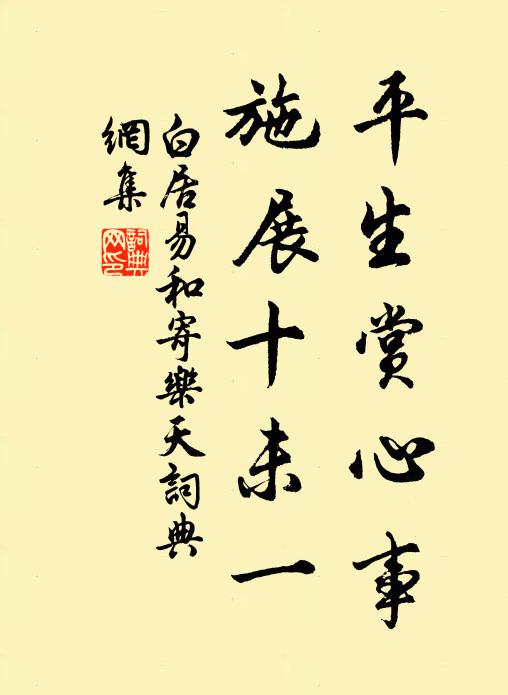 平生賞心事
施展十未一
白居易和寄樂天詞典
網集
詞典
网印